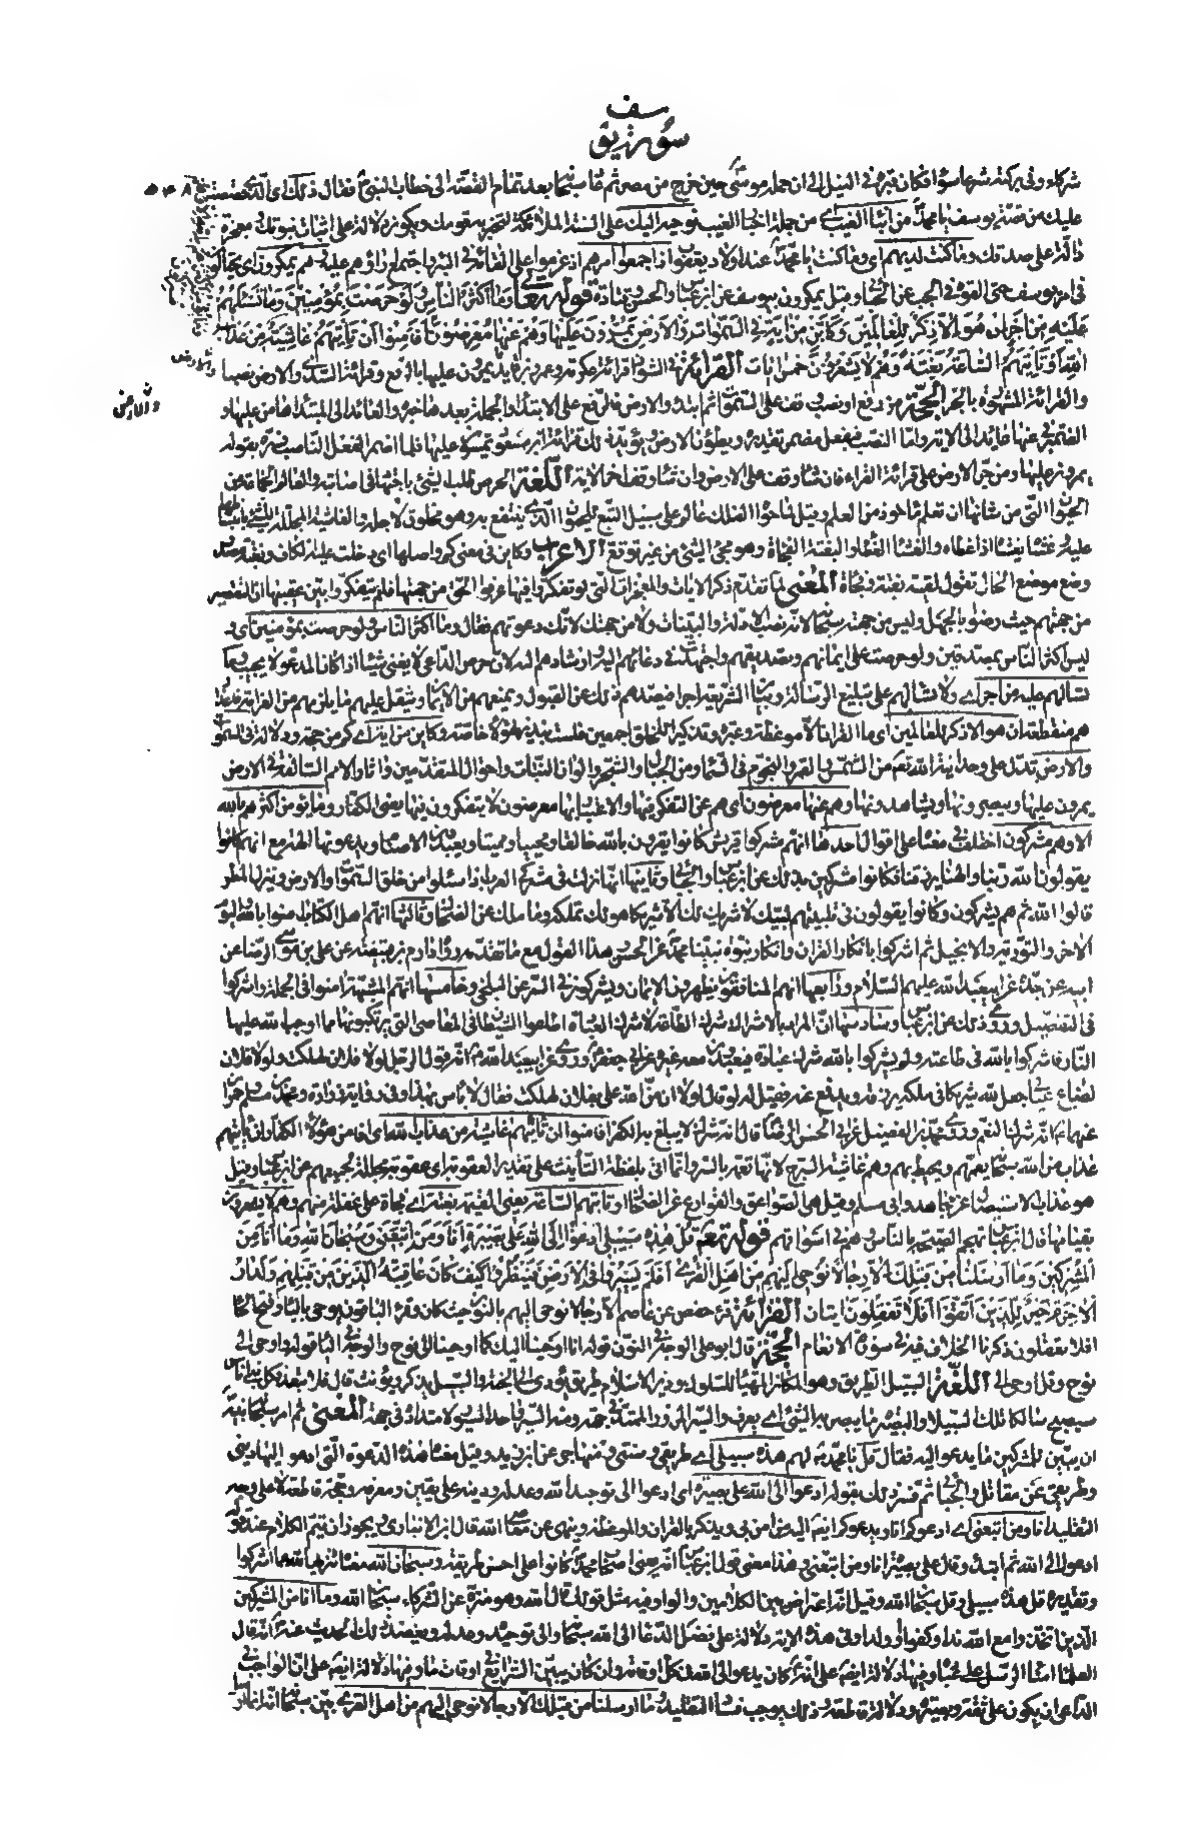 سورة يوسف
شركاء وفى بركة شرها سواء فكان قبره فى النيل الى ان حمله موسى حين خرج من مصر ثم قال سبحانه بعد تمام القصة الى خطاب النبى فقال ذلك اى الذى قصصته
عليك من قصة يوسف يا محمد من انباء الغيب اى من جملة اخبار الغيب نوحيه اليك على السنة الملائكة لتخبر به قومك ويكون دلالة على اثبات نبوتك ومعجزة
دالة على صدقك وما كنت لديهم اى وما كنت يا محمد عند اولاد يعقوب اذ اجمعوا امرهم اذ عزموا على القائه فى البئر واجتمع اراؤهم عليه وهم يمكرون اى يحتالون
فى امر يوسف حتى القوه فى الجب عن الجبائى وقيل يمكرون بيوسف عن ابن عباس والحسن وقتادة قوله تعالى وما اكثر الناس ولو حرصت بمؤمنين وما تسئلهم
عليه من اجر ان هو الا ذكر للعالمين وكاين من اية فى السموات والارض يمرون عليها وهم عنها معرضون افامنوا ان تاتيهم غاشية من عذاب
الله او تاتيهم الساعة بغتة وهم لا يشعرون خمس ايات القرائة فى الشواذ قرائة عكرمة وعمرو بن فايد يمرون عليها بالرفع وقرائة السدى والارض نصبا
والقرائة المشهورة بالجر الحجة من رفع او نصب وقف على السموات ثم ابتدء والارض فالرفع على الابتداء والجملة بعدها خبره والعائد الى المبتدا ها من عليها و
الضمير فى عنها عائد الى الاية واما النصب فبفعل مضمر تقديره ويطؤن الارض ويؤيد ذلك قرائة ابن مسعود يمشون عليها فلما اضمر الفعل الناصب فسره بقوله
يمرون عليها ومن جر الارض على قرائة القراء فان شاء وقف على الارض وان شاء وقف اخر الاية اللغة الحرص طلب الشئ باجتهاد فى اصابته والعالم الجماعة من
الحيوان التى من شانها ان تعلم ماخوذ من العلم وقيل لما حواه الفلك عالم على سبيل التبع للحيوان الذى ينتفع به وهو مخلوق لاجله والغاشية المجللة للشئ بانبساطها
عليه غشيه يغشاه اذا غطاه والغشاء الغطاء والبغتة الفجاة وهو مجئ الشئ من غير توقع الاعراب وكاين فى معنى كم واصلها اى دخلت عليه الكاف وبغتة مصدر
وضع موضع الحال تقول لقيته بغتة وفجاة المعنى لما تقدم ذكر الايات والمعجزات التى لو تفكروا فيها عرفوا الحق من جهتها فلم يتفكروا بين عقيبها ان التقصير
من جهتهم حيث رضوا بالجهل وليس من جهته سبحانه لانه نصب الادلة والبينات ولا من جهتك لانك دعوتهم فقال وما اكثر الناس ولو حرصت بمؤمنين اى و
ليس اكثر الناس بمصدقين ولو حرصت على ايمانهم وتصديقهم واجتهدت فى دعائهم اليه وارشادهم اليه لان حرص الداعى لا يغنى شيئا اذا كان المدعو لا يجيب وما
تسالهم عليه من اجر اى ولا تسالهم على تبليغ الرسالة وبيان الشريعة اجرا فيصدهم ذلك عن القبول ويمنعهم من الايمان ويثقل عليهم ما يلزمهم من الغرامة
هم منقطعة ان هو الا ذكر للعالمين اى ما القران الا موعظة وعبرة وتذكير للخلق اجمعين فلست بنذير هؤلاء خاصة وكاين من اية اى كم من حجة ودلالة فى السموات
والارض تدل على وحدانية الله تعالى من الشمس والقمر والنجوم فى السماء ومن الجبال والشجر والوان النبات واحوال المتقدمين واثار الامم السالفة فى الارض
يمرون عليها ويبصرونها ويشاهدونها وهم عنها معرضون اى هم عن التفكر فيها والاعتبار بها معرضون لا يتفكرون فيها يعنى الكفار وما يؤمن اكثرهم بالله
الا وهم مشركون اختلف فى معناه على اقوال احدها انهم مشركوا قريش كانوا يقرون بالله خالقا ومحييا ومميتا ويعبدون الاصنام ويدعونها الهة مع انهم كانوا
يقولون الله ربنا والهنا يرزقنا فكانوا مشركين بذلك عن ابن عباس والجبائى وثانيها انها نزلت فى مشركى العرب اذ سئلوا من خلق السموات والارض وينزل المطر
قالوا الله ثم هم يشركون وكانوا يقولون فى تلبيتهم لبيك لا شريك لك الا شريكا هو لك تملكه وما ملك عن الضحاك وثالثها انهم اهل الكتاب امنوا بالله واليوم
الاخر والتورية والانجيل ثم اشركوا بانكار القران وانكار نبوة نبينا محمد عن الحسن وهذا القول مع ما تقدمه رواه دارم بن قبيصة عن على بن موسى الرضا عن
ابيه عن جده عن ابى عبد الله عليهم السلام ورابعها انهم المنافقون يظهرون الايمان ويشركون فى السر عن البلخى وخامسها انهم المشبهة امنوا فى الجملة واشركوا
فى التفصيل وروى ذلك عن ابن عباس وسادسها ان المراد بالاشراك شرك الطاعة لا شرك العبادة اطاعوا الشيطان فى المعاصى التى يرتكبونها مما اوجب الله عليها
النار فاشركوا بالله فى طاعته ولم يشركوا بالله شرك عبادة فيعبدون معه غيره عن ابى جعفر وروى عن ابى عبد الله انه قول الرجل لولا فلان لهلكت ولولا فلان
لضاع عيالى جعل لله شريكا فى ملكه يرزقه ويدفع عنه فقيل له لو قال لولا ان من الله على بفلان لهلكت فقال لا باس بهذا وفى رواية زرارة ومحمد بن مسلم وحمران
عنهما انه شرك النعم وروى محمد بن الفضيل عن ابى الحسن الرضا قال انه شرك لا يبلغ به الكفر افامنوا ان تاتيهم غاشية من عذاب الله اى افامن هؤلاء الكفار ان ياتيهم
عذاب من الله سبحانه يعمهم ويحيط بهم وهم غاشية السرج لانها تعمه بالستر وانما اتى بلفظة التانيث على تقدير العقوبة اى عقوبة مجللة لجميعهم عن ابن عباس وقيل
هو عذاب الاستيصال عن مجاهد وابى مسلم وقيل هى الصواعق والقوارع عن الضحاك او تاتيهم الساعة يعنى القيمة بغتة اى فجاة على غفلة منهم وهم لا يشعرون
بقيامها قال ابن عباس تهجم الصيحة بالناس وهم فى اسواقهم قوله تعالى قل هذه سبيلى ادعوا الى الله على بصيرة انا ومن اتبعنى وسبحان الله وما انا من
المشركين وما ارسلنا من قبلك الا رجالا نوحى اليهم من اهل القرى افلم يسيروا فى الارض فينظروا كيف كان عاقبة الذين من قبلهم ولدار
الاخرة خير للذين اتقوا افلا تعقلون ايتان القرائة قرء حفص عن عاصم الا رجالا نوحى اليهم بالنون حيث كان وقرء الباقون يوحى بالياء وفتح الحاء
افلا تعقلون ذكرنا الخلاف فيه فى سورة الانعام الحجة قال ابو على الوجه فى النون قوله انا اوحينا اليك كما اوحينا الى نوح والوجه فى الياء قوله واوحى الى
نوح وقل اوحى الى اللغة السبيل الطريق وهو المكان المهيا للسلوك ودين الاسلام طريق يؤدى الى الجنة والسبيل يذكر ويؤنث قال فلا تبعد فكل فتى اناس
سيصبح سالكا تلك السبيلا والبصيرة ما يبصر به الشئ اى يعرف والسير المرور الممتد فى جهة ومنه السير واحد السيور لامتداده فى جهة المعنى ثم امر سبحانه نبيه
ان يبين للمشركين ما يدعو اليه فقال قل يا محمد لهم هذه سبيلى اى طريقى وسنتى ومنهاجى عن ابن زيد وقيل معناه هذه الدعوة التى ادعو اليها دينى
وطريقتى عن مقاتل والجبائى ثم فسر ذلك بقوله ادعوا الى الله على بصيرة اى ادعوا الى توحيد الله وعدله ودينه على يقين ومعرفة وحجة قاطعة لا على وجه
التقليد انا ومن اتبعنى اى ادعوكم انا ويدعوكم ايضا اليه من امن بى ويذكر بالقران والموعظة وينهى عن معاصى الله قال ابن الانبارى ويجوز ان يتم الكلام عند قوله
ادعوا الى الله ثم ابتدء وقال على بصيرة انا ومن اتبعنى وهذا معنى قول ابن عباس انه يعنى اصحاب محمد كانوا على احسن طريقة وسبحان الله معناه تنزيها لله عما اشركوا
وتقديره قل هذه سبيلى وقل سبحان الله وقيل انه اعتراض بين الكلامين والواو فيه مثل قولك قال الله وهو منزه عن الشركاء سبحان الله وما انا من المشركين
الذين اتخذوا مع الله ندا وكفوا وولدا وفى هذه الاية دلالة على فضل الدعاء الى الله سبحانه والى توحيده وعدله ويعضد ذلك الحديث عنه انه قال
العلماء امناء الرسل على عباده وفيها دلالة ايضا على انه كان يدعو الى الله فى كل اوقاته وان كان يبين الشرايع فى اوقات ما وفيها دلالة ايضا على ان الواجب فى
الداعى ان يكون على ثقة وبصيرة ودلالة قاطعة وذلك يوجب فساد التقليد وما ارسلنا من قبلك الا رجالا نوحى اليهم من اهل القرى بين سبحانه انه انما ارسل
والارض